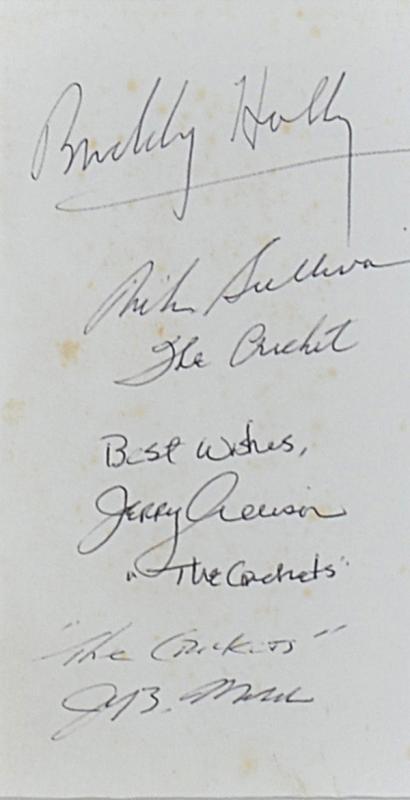 Buddy Holly
Niki Sullivan
The Cricket
Best Wishes,
Jerry Allison
"The Crickets"
"The Crickets"
J.B. Mauldin